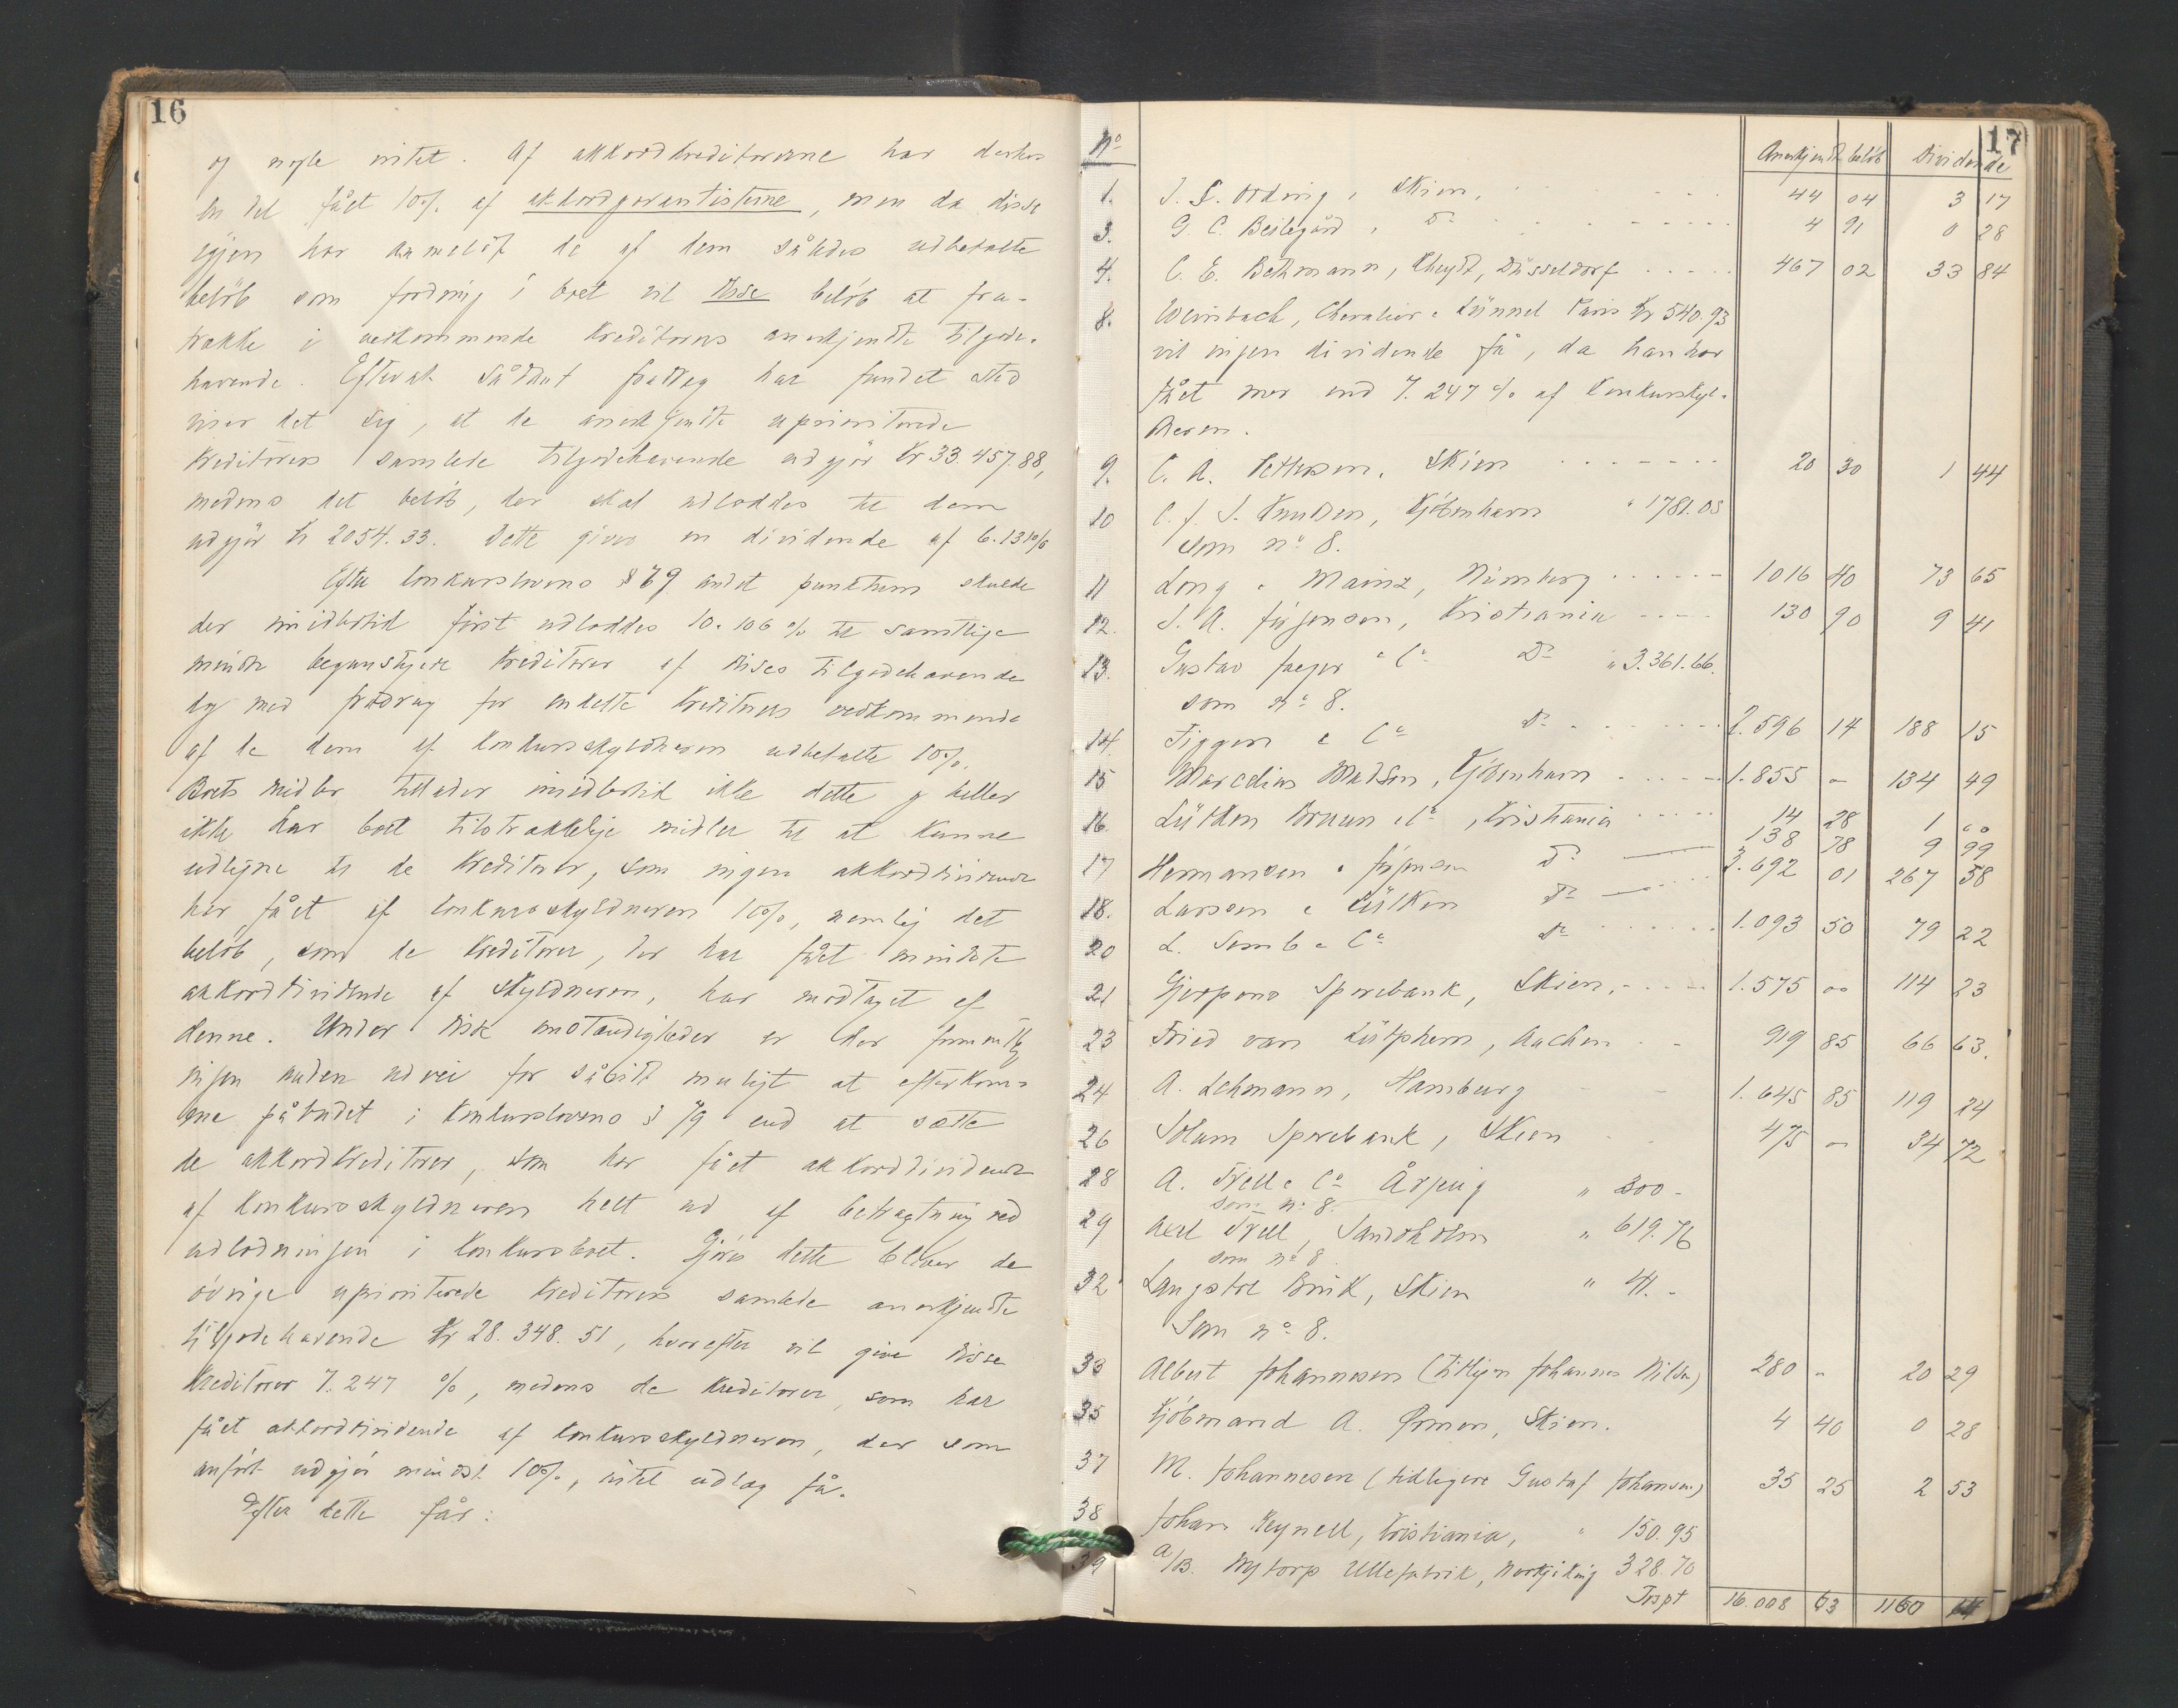 16
og nogle intet. Af akkordkreditorerne har derhos
en del fået 10% af akkordgarantisterne, men da disse
igjen har anmeldt de af dem således udbetalte
beløb som fordring i boet vil disse beløb at fra-
trække i vedkommende kreditorers anerkjendte tilgode-
havende. Efterat sådant fradrag har fundet sted
viser det sig, at de anerkjendte uprioriterede
kreditorers samlede tilgodehavende udgjør Kr 33.457.88,
medens det beløb, der skal udloddes til dem
udgjør Kr 2054.33. Dette giver en dividende af 6.13%
Efter konkurslovens § 79 andet punktum skulde
der imidlertid först udloddes 10.106% til samtlige
mindre begunstigede kreditorer af disses tilgodehavende
dog med fradrag for enkelte kreditorers vedkommende
af de dem af konkursskyldneren udbetalte 10%.
Boets midler tillader imidlertid ikke dette og heller
ikke har boet tilstrækkelige midler til at kunne
udligne til de kreditorer, som ingen akkorddividende
har fået af konkursskyldneren 10%, nemlig det
beløb, som de kreditorer, der har fået mindste
akkorddividende af skyldneren, har modtaget af
denne. Under disse omstændigheder er der formentlig
ingen anden udvei for såvidt muligt at efterkom-
me påbudet i konkurslovens § 79 end at sætte
de akkordkreditorer, som har fået akkorddividende
af konkursskyldneren helt ud af betragtning ved
udlodningen i konkursboet. Gjöres dette bliver de
övrige uprioriterede kreditorers samlede anerkjendte
tilgodehavende Kr 28.348.51, hvorefter vil give disse
kreditorer 7.247 %, medens de kreditorer, som har
fået akkorddividende af konkursskyldneren, der som
anført udgjör mindst 10%, intet udlæg får.
Efter dette får:
17
No Anerkjendt beløb Dividende
1. J. L. Ording, Skien, 44 04 3 17
3. G. C. Beilegård, Do 4 91 0 28
4. C. E. Bethmann, Rheydt, Düsseldorf 467 02 33 84
8. Weinbach, Chevalier & Lünnel Paris Kr 540.93
vil ingen dividende få, da han har
fået mer end 7.247% af konkursskyl-
deren.
9. C. A. Pettersen, Skien 20 30 1 44
10 C. J. S. Knudsen, Kjöbenhavn " 1781.03
som no 8.
11 Long & Mainz, Nürnberg 1016 40 73 65
12. J. A. Jörgensen, Kristiania 130 90 9 41
13. Gustav Jæger & Co Do " 3.361.66.
som no 8.
14. Figgen & Co Do 2.596 14 188 15
15 Marcelius Madsen, Kjöbenhavn 1.855 - 134 49
16. Lütken Bruun & Co, Kristiania 14 28 1 00
17 Hermansen & Jörgensen Do 138 78 9 99
18. Larsen & Lütken Do 3.692 01 267 58
20 L. Semb & Co Do 1.093 50 79 22
21 Gjerpens Sparebank, Skien 1.575 00 114 23
23 Fried van Lütphen, Aachen 919 85 66 63.
24 A. Lehmann, Hamburg 1.645 85 119 24
26 Solum Sparebank, Skien 475 - 34 72
28 A. Trell & Co Årjäng " 300 -
som no 8.
29 Axel Trell, Sandsholm " 619.76
som no 8
32 Langstøl Brük, Skien " 41. -
Som no 8.
33 Albert Johannesen (tidligere Johannes Nilsen) 280 - 20 29
35 Kjöbmand A. Ørmen, Skien. 4 40 0 28
37 M. Johannesen (tidligere Gustaf Johansen) 35 25 2 53
38 Johan Reynell, Kristiania, " 150.95
39 A/B. Nystorp Ullefabrik, Norrköping 328.70
Trspt 16.008 63 1160 14